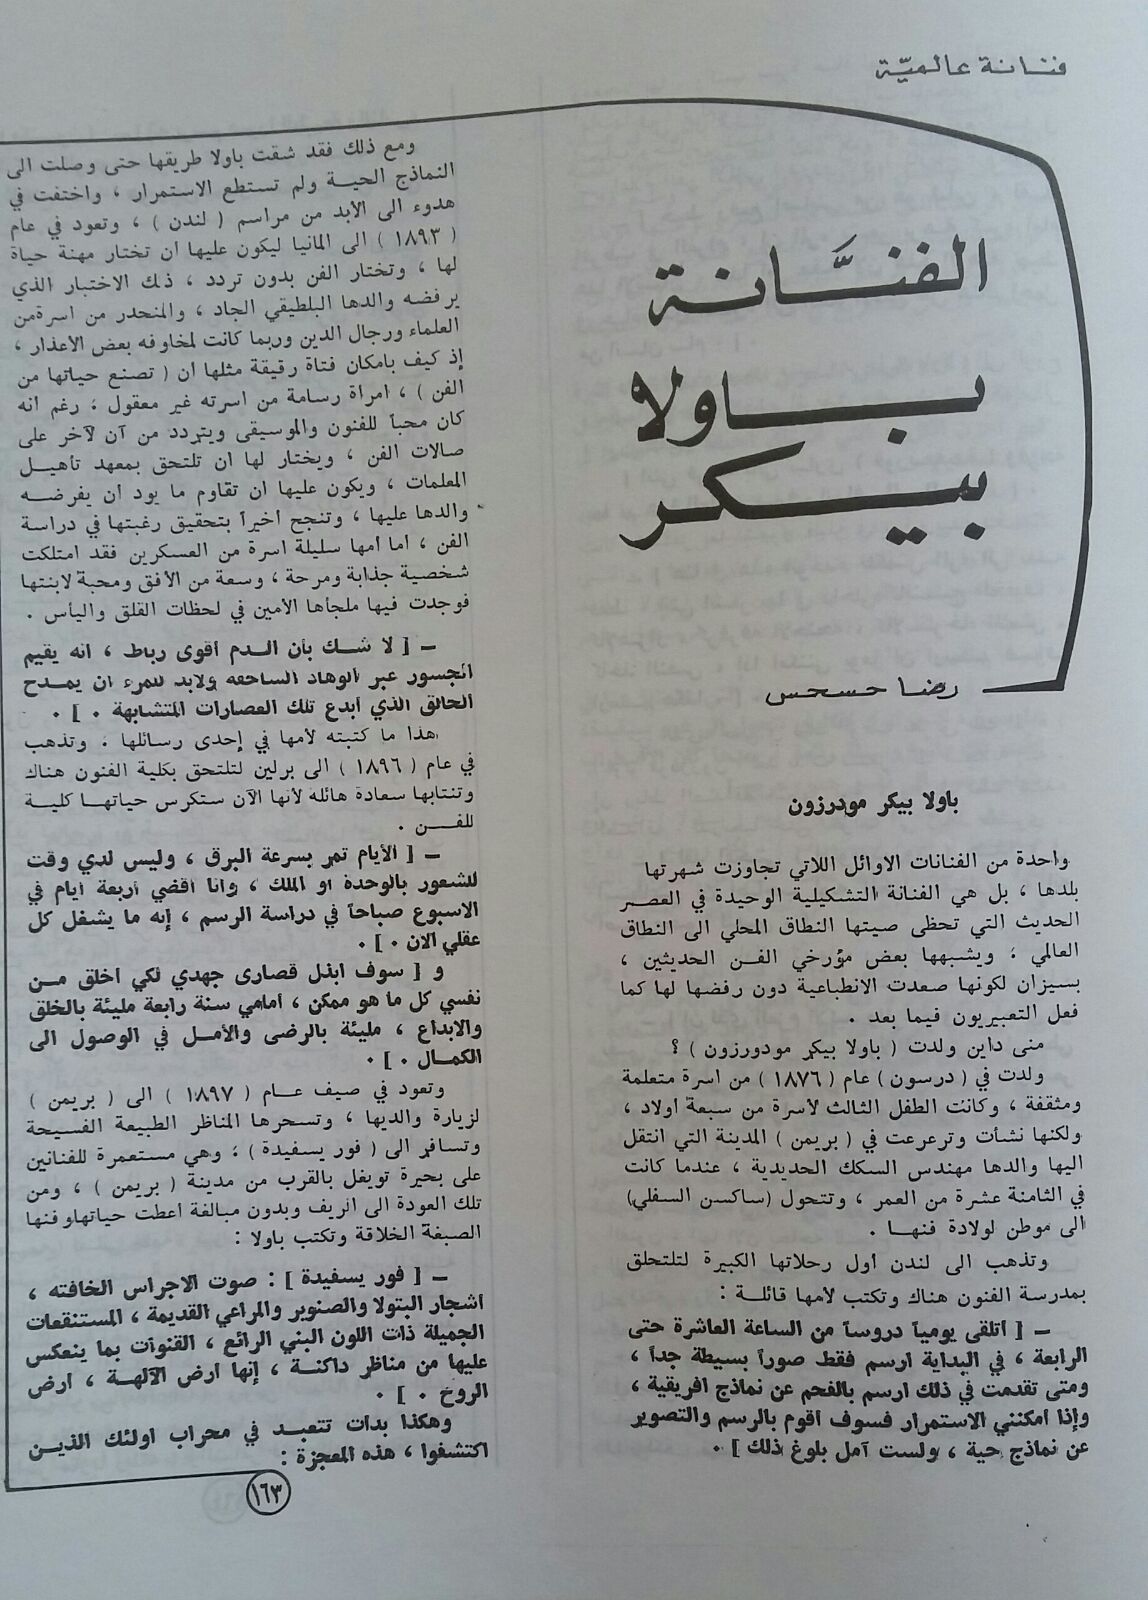 فنانة عالميّة
الفنَّانة
باولا
بيكر
رضا حسحس
باولا بيكر مودرزون
واحدة من الفنانات الاوائل اللاتي تجاوزت شهرتها
بلدها ، بل هي الفنانة التشكيلية الوحيدة في العصر
الحديث التي تحظى صيتها النطاق المحلي الى النطاق
العالمي ؛ ويشبهها بعض مؤرخي الفن الحديثين ،
بسيزان لكونها صعدت الانطباعية دون رفضها لها كما
فعل التعبيريون فيما بعد .
متى داين ولدت ( باولا بيكر مودورزون ) ؟
ولدت في ( درسون ) عام ( ١٨٧٦ ) من اسرة متعلمة
ومثقفة ، وكانت الطفل الثالث لأسرة من سبعة اولاد ،
ولكنها نشأت وترعرعت في ( بريمن ) المدينة التي انتقل
اليها والدها مهندس السكك الحديدية ، عندما كانت
في الثامنة عشرة من العمر ، وتتحول (ساكسن السفلي)
الى موطن لولادة فنهـا .
وتذهب الى لندن أول رحلاتها الكبيرة لتلتحلق
بمدرسة الفنون هناك وتكتب لأمها قائلـة :
– [ أتلقى يومياً دروساً من الساعة العاشرة حتى
الرابعة ، في البداية ارسم فقط صوراً بسيطة جداً ،
ومتى تقدمت في ذلك ارسم بالفحم عن نماذج افريقية ،
وإذا امكنني الاستمرار فسوف اقوم بالرسم والتصوير
عن نماذج حية ، ولست آمل بلوغ ذلك ] .
ومع ذلك فقد شقت باولا طريقها حتى وصلت الى
النماذج الحية ولم تستطع الاستمرار ، واختفت في
هدوء الى الأبد من مراسم ( لندن ) ، وتعود في عام
( ١٨٩٣ ) الى المانيا ليكون عليها ان تختار مهنة حياة
لها ، وتختار الفن بدون تردد ، ذلك الاختبار الذي
يرفضه والدها البلطيقي الجاد ، والمنحدر من اسرة من
العلماء ورجال الدين وربما كانت لمخاوفه بعض الاعذار ،
إذ كيف بامكان فتاة رقيقة مثلها ان ( تصنع حياتها من
الفن ) ، امراة رسامة من اسرته غير معقول ، رغم انه
كان محباً للفنون والموسيقى ويتردد من آن لآخر على
صالات الفن ، ويختار لها ان تلتحق بمعهد تأهيـل
المعلمات ، ويكون عليها ان تقاوم ما يود ان يفرضـه
والدها عليها ، وتنجح اخيراً بتحقيق رغبتها في دراسة
الفن ، اما امها سليلة اسرة من العسكرين فقد امتلكت
شخصية جذابة ومرحة ، وسعة من الأفق ومحبة لابنتها
فوجدت فيها ملجأها الأمين في لحظات القلق واليأس .
– [ لا شـك بأن الـدم أقوى رباط ، انه يقيم
الجسور عبر الوهاد الساحقه ولابد للمرء ان يمـدح
الخالق الذي أبدع تلك العصارات المتشابهة . ] .
هذا ما كتبته لأمها في إحدى رسائلها . وتذهب
في عام ( ١٨٩٦ ) الى برلين لتلتحق بكلية الفنون هناك
وتنتابها سعادة هائله لأنها الآن ستكرس حياتهـا كليـة
للفــن .
– [ الأيام تمر بسرعة البرق ، وليس لدي وقت
للشعور بالوحدة او الملك ، وانا اقضي أربعة أيام في
الاسبوع صباحاً في دراسة الرسم ، إنه ما يشغل كل
عقلي الآن . ] .
و [ سوف ابذل قصارى جهدي لكي اخلق مـن
نفسي كل ما هو ممكن ، أمامي سنة رابعة مليئة بالخلق
والابداع ، مليئة بالرضى والأمـل في الوصول الى
الكمال . ] .
وتعود في صيف عـام ( ١٨٩٧ ) الى ( بريمن )
لزيارة والديها ، وتسحرها المناظر الطبيعة الفسيحة
وتسافر الى ( فور بسفيدة ) ؛ وهي مستعمرة للفنانين
على بحيرة تويغل بالقرب من مدينة ( بريمن ) ، ومن
تلك العودة الى الريف وبدون مبالغة اعطت حياتها وفنها
الصبغة الخلاقة وتكتب باولا :
– [ فور يسفيدة ] : صوت الاجراس الخافته ،
أشجار البتولا والصنوبر والمراعي القديمة ، المستنقعات
الجميلة ذات اللون البني الرائع ، القنوات بما ينعكس
عليها من مناظر داكنـة ، إنها ارض الآلهـة ، ارض
الروح . ] .
وهكذا بدات تتعبـد في محراب اولئك الذيـن
اكتشفوا ، هذه المعجزة :
١٦٣